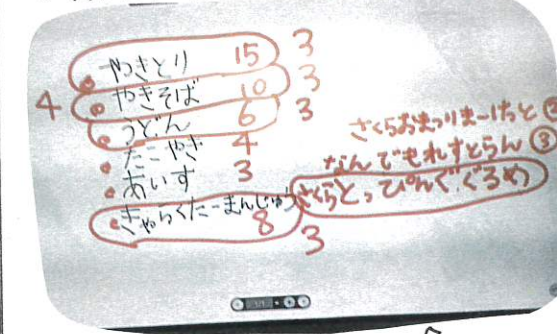 やきとり 15 3
4 やきそば 10 3
うどん 6 3
たこやき 4
あいす 3
きゃらくたーまんじゅう 8 3
さくらおまつりまーけっと ②
なんでもれすとらん ③
さくらとっぴんぐ、ぐるめ
1/1